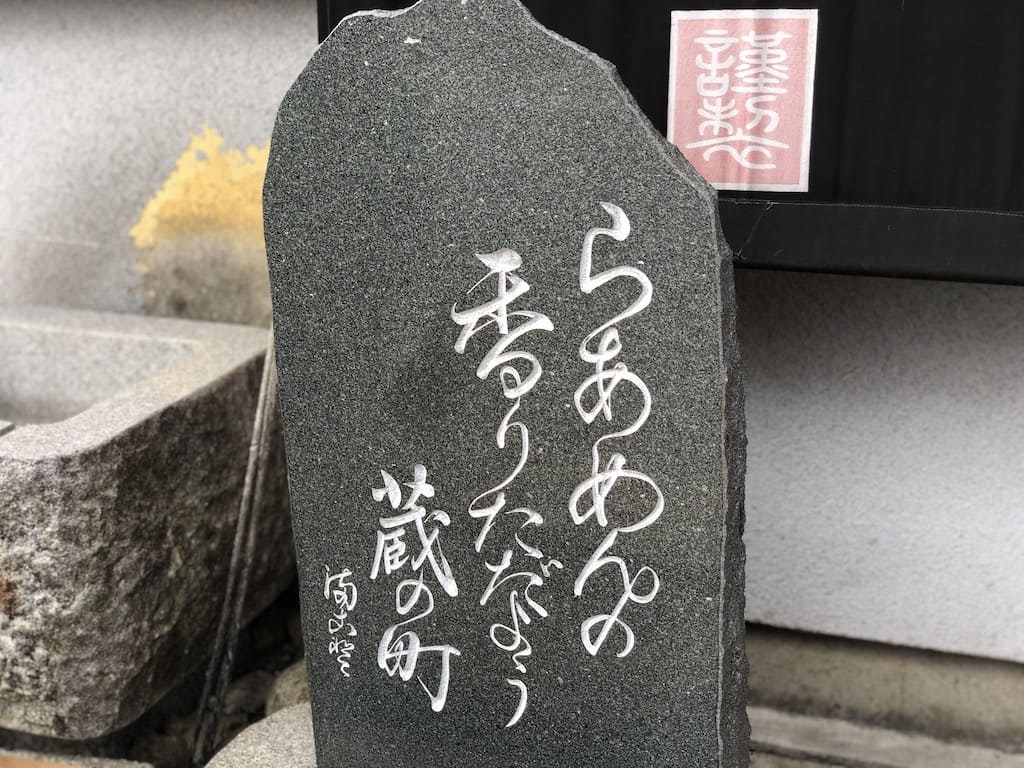 らあめんの
香りただよう
蔵の町